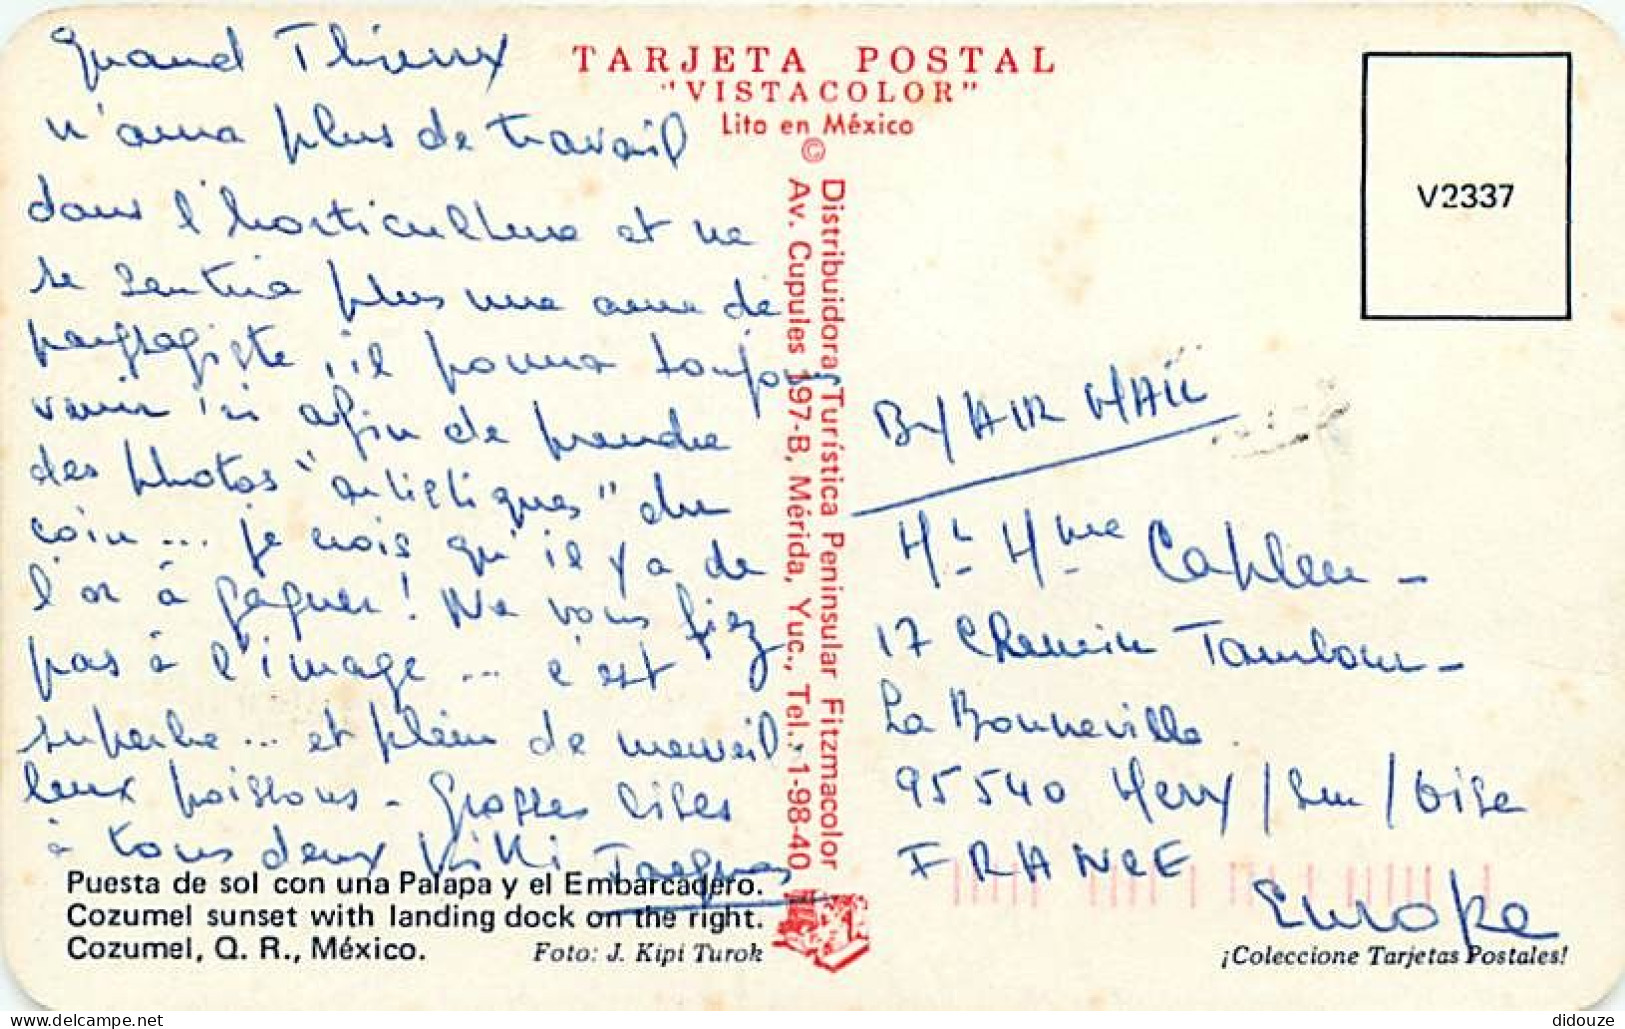 Quand Thierry
n'aura plus de travail
dans l'horticulture et ne
se sentira plus une ame de
paysagiste, il pourra toujours
venir ici afin de prendre
des photos "artistiques" du
coin... je crois qu'il y a de
l'or à gagner! Ne vous fiez
pas à l'image... c'est
superbe... et plein de merveil-
leux poissons - Grosses bises
à tous deux Kiki Jacques
Puesta de sol con una Palapa y el Embarcadero.
Cozumel sunset with landing dock on the right.
Cozumel, Q. R., México. Foto: J. Kipi Turok
TARJETA POSTAL
"VISTACOLOR"
Lito en México
© Distribuidora Turística Peninsular Fitzmacolor
Av. Cupules 197-B, Mérida, Yuc., Tel. 1-98-40
V2337
By AIR MAIL
Mr Mme Caplen -
17 Chemin Tambour -
La Bonneville
95540 Mery/sur/Oise
FRANCE
Europe
¡Coleccione Tarjetas Postales!
delcampe.net
didouze